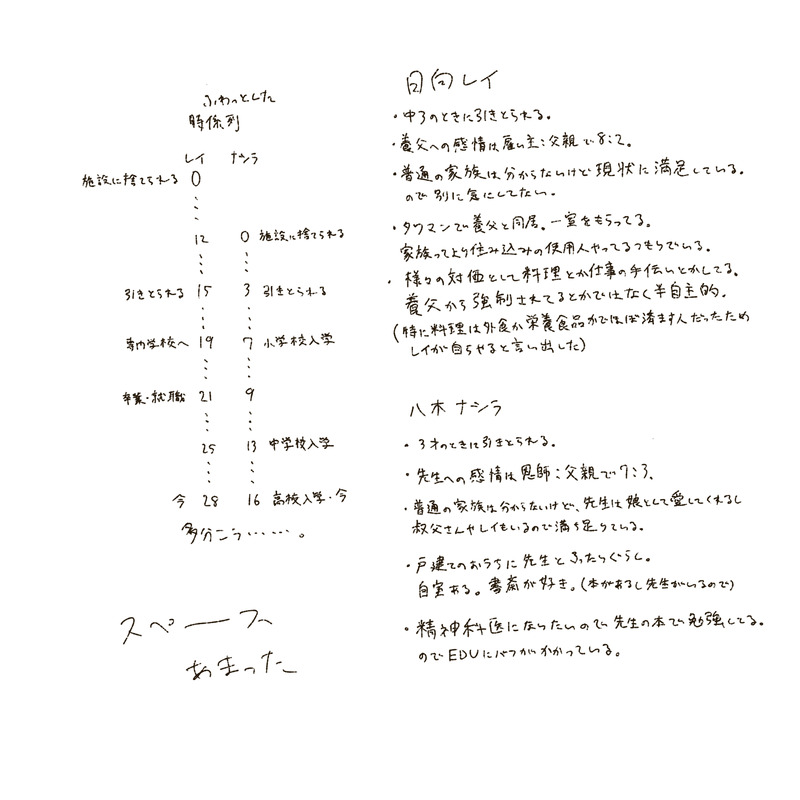 ふわっとした
時係列
レイ ナシラ
施設に捨てられる 0
12 0 施設に捨てられる
引きとられる 15 3 引きとられる
専門学校へ 19 7 小学校入学
卒業・就職 21 9
25 13 中学校入学
今 28 16 高校入学・今
多分こう……。
スペース
あまった
日向レイ
・中3のときに引きとられる。
・養父への感情は雇い主:父親で8:2。
・普通の家族は分からないけど現状に満足している。
ので別に気にしてない。
・タワマンで養父と同居。一室をもらってる。
家族ってより住み込みの使用人やってるつもりでいる。
・様々の対価として料理とか仕事の手伝いとかしてる。
養父から強制されてるとかではなく半自主的。
(特に料理は外食か栄養食品かでほぼ済ます人だったため
レイが自らやると言い出した)
八木ナシラ
・3才のときに引きとられる。
・先生への感情は恩師:父親で7:3。
・普通の家族は分からないけど、先生は娘として愛してくれるし
叔父さんやレイもいるので満ち足りている。
・戸建てのおうちに先生とふたりぐらし。
自室ある。書斎が好き。(本があるし先生がいるので)
・精神科医になりたいので先生の本で勉強してる。
のでEDUにバフがかかっている。